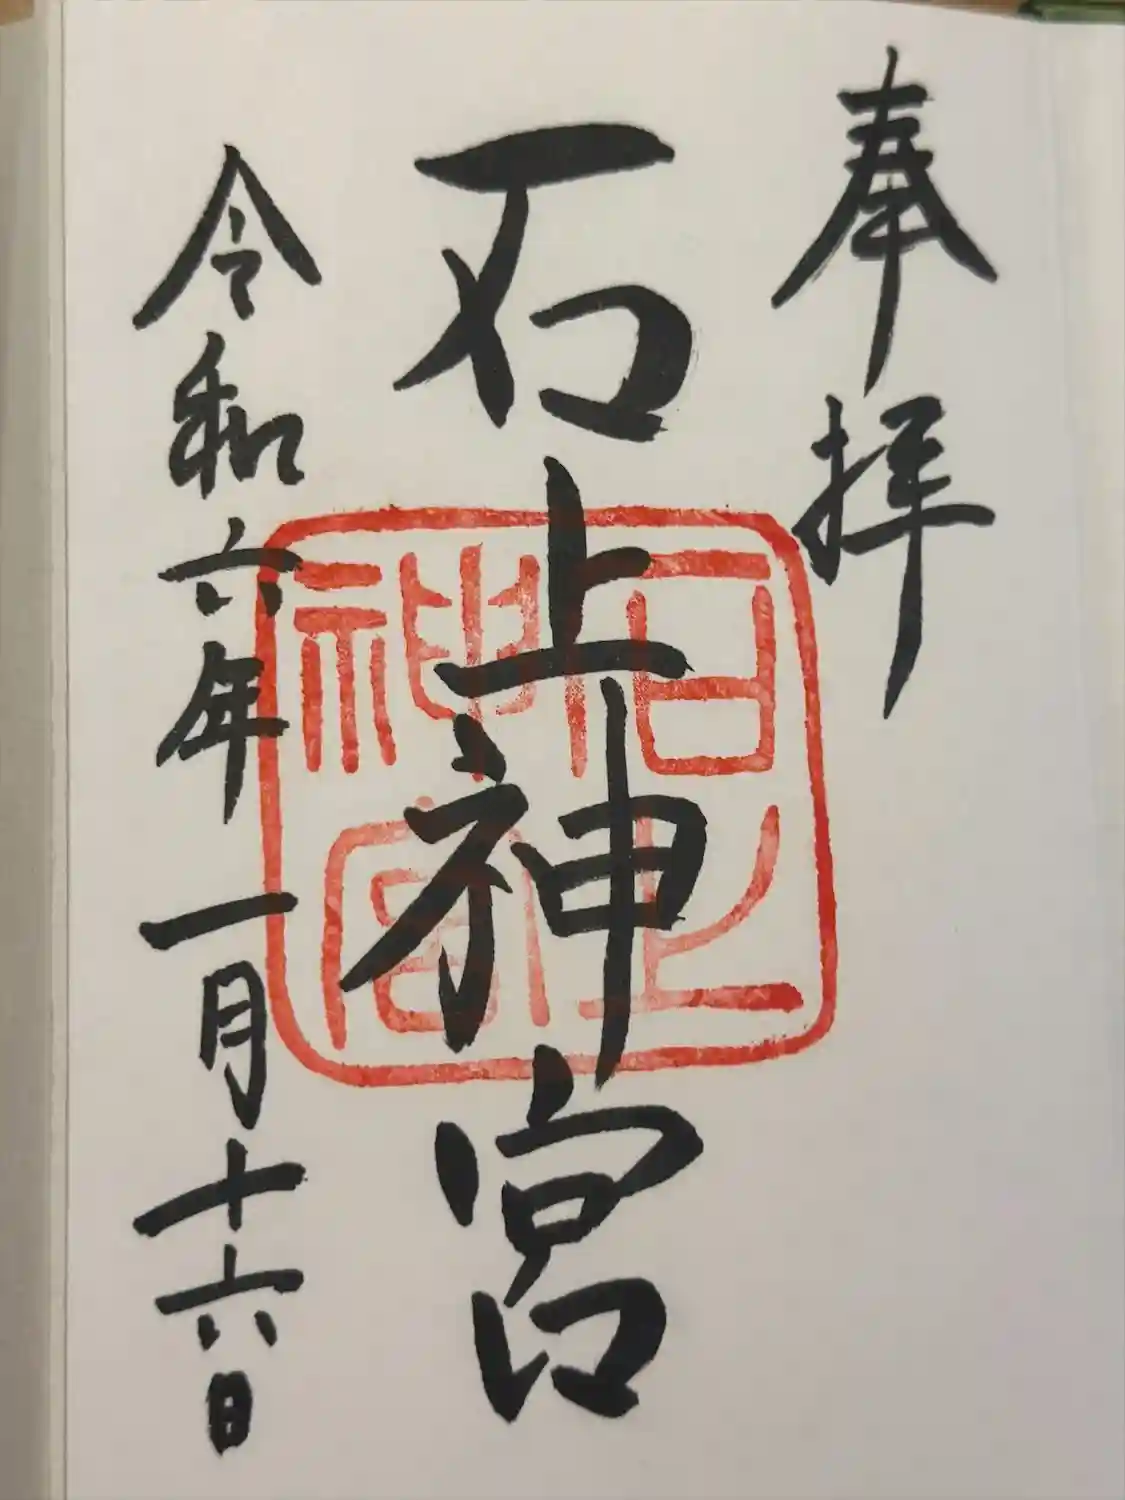 奉拝
石上神宮
石上神宮
令和六年一月十六日